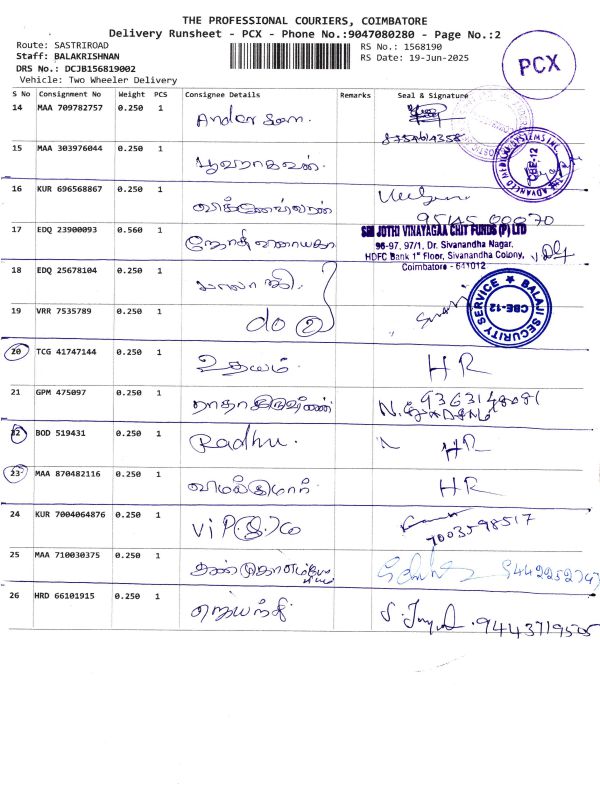 THE PROFESSIONAL COURIERS, COIMBATORE
Delivery Runsheet - PCX - Phone No.:9047080280 - Page No.:2
Route: SASTRIROAD
Staff: BALAKRISHNAN
DRS No.: DCJB156819002
Vehicle: Two Wheeler Delivery
RS No.: 1568190
RS Date: 19-Jun-2025
PCX
S No Consignment No Weight PCS Consignee Details Remarks Seal & Signature
14 MAA 709782757 0.250 1 Anderson.
15 MAA 303976044 0.250 1 பூவராகவன்.
ADVANCED MEDICAL SYSTEMS INC. CBE-12
16 KUR 696568867 0.250 1 விக்னேஷ்வரன்
17 EDQ 23900093 0.560 1 ஜோதி விநாயகா
SRI JOTHI VINAYAGAA CHIT FUNDS (P) LTD
96-97, 97/1, Dr. Sivanandha Nagar,
HDFC Bank 1st Floor, Sivanandha Colony,
Coimbatore - 641012
18 EDQ 25678104 0.250 1 பாலாஜி
19 VRR 7535789 0.250 1 do 2
BALAJI SECURITY SERVICE CBE-12
20 TCG 41747144 0.250 1 உதயம் HR
21 GPM 475097 0.250 1 ராதாகிருஷ்ணன் 9363148081
22 BOD 519431 0.250 1 Radhu. HR
23 MAA 870482116 0.250 1 விமல்குமார் HR
24 KUR 7004064876 0.250 1 ViP 7003598517
25 MAA 710030375 0.250 1
26 HRD 66101915 0.250 1 ஜெயந்தி